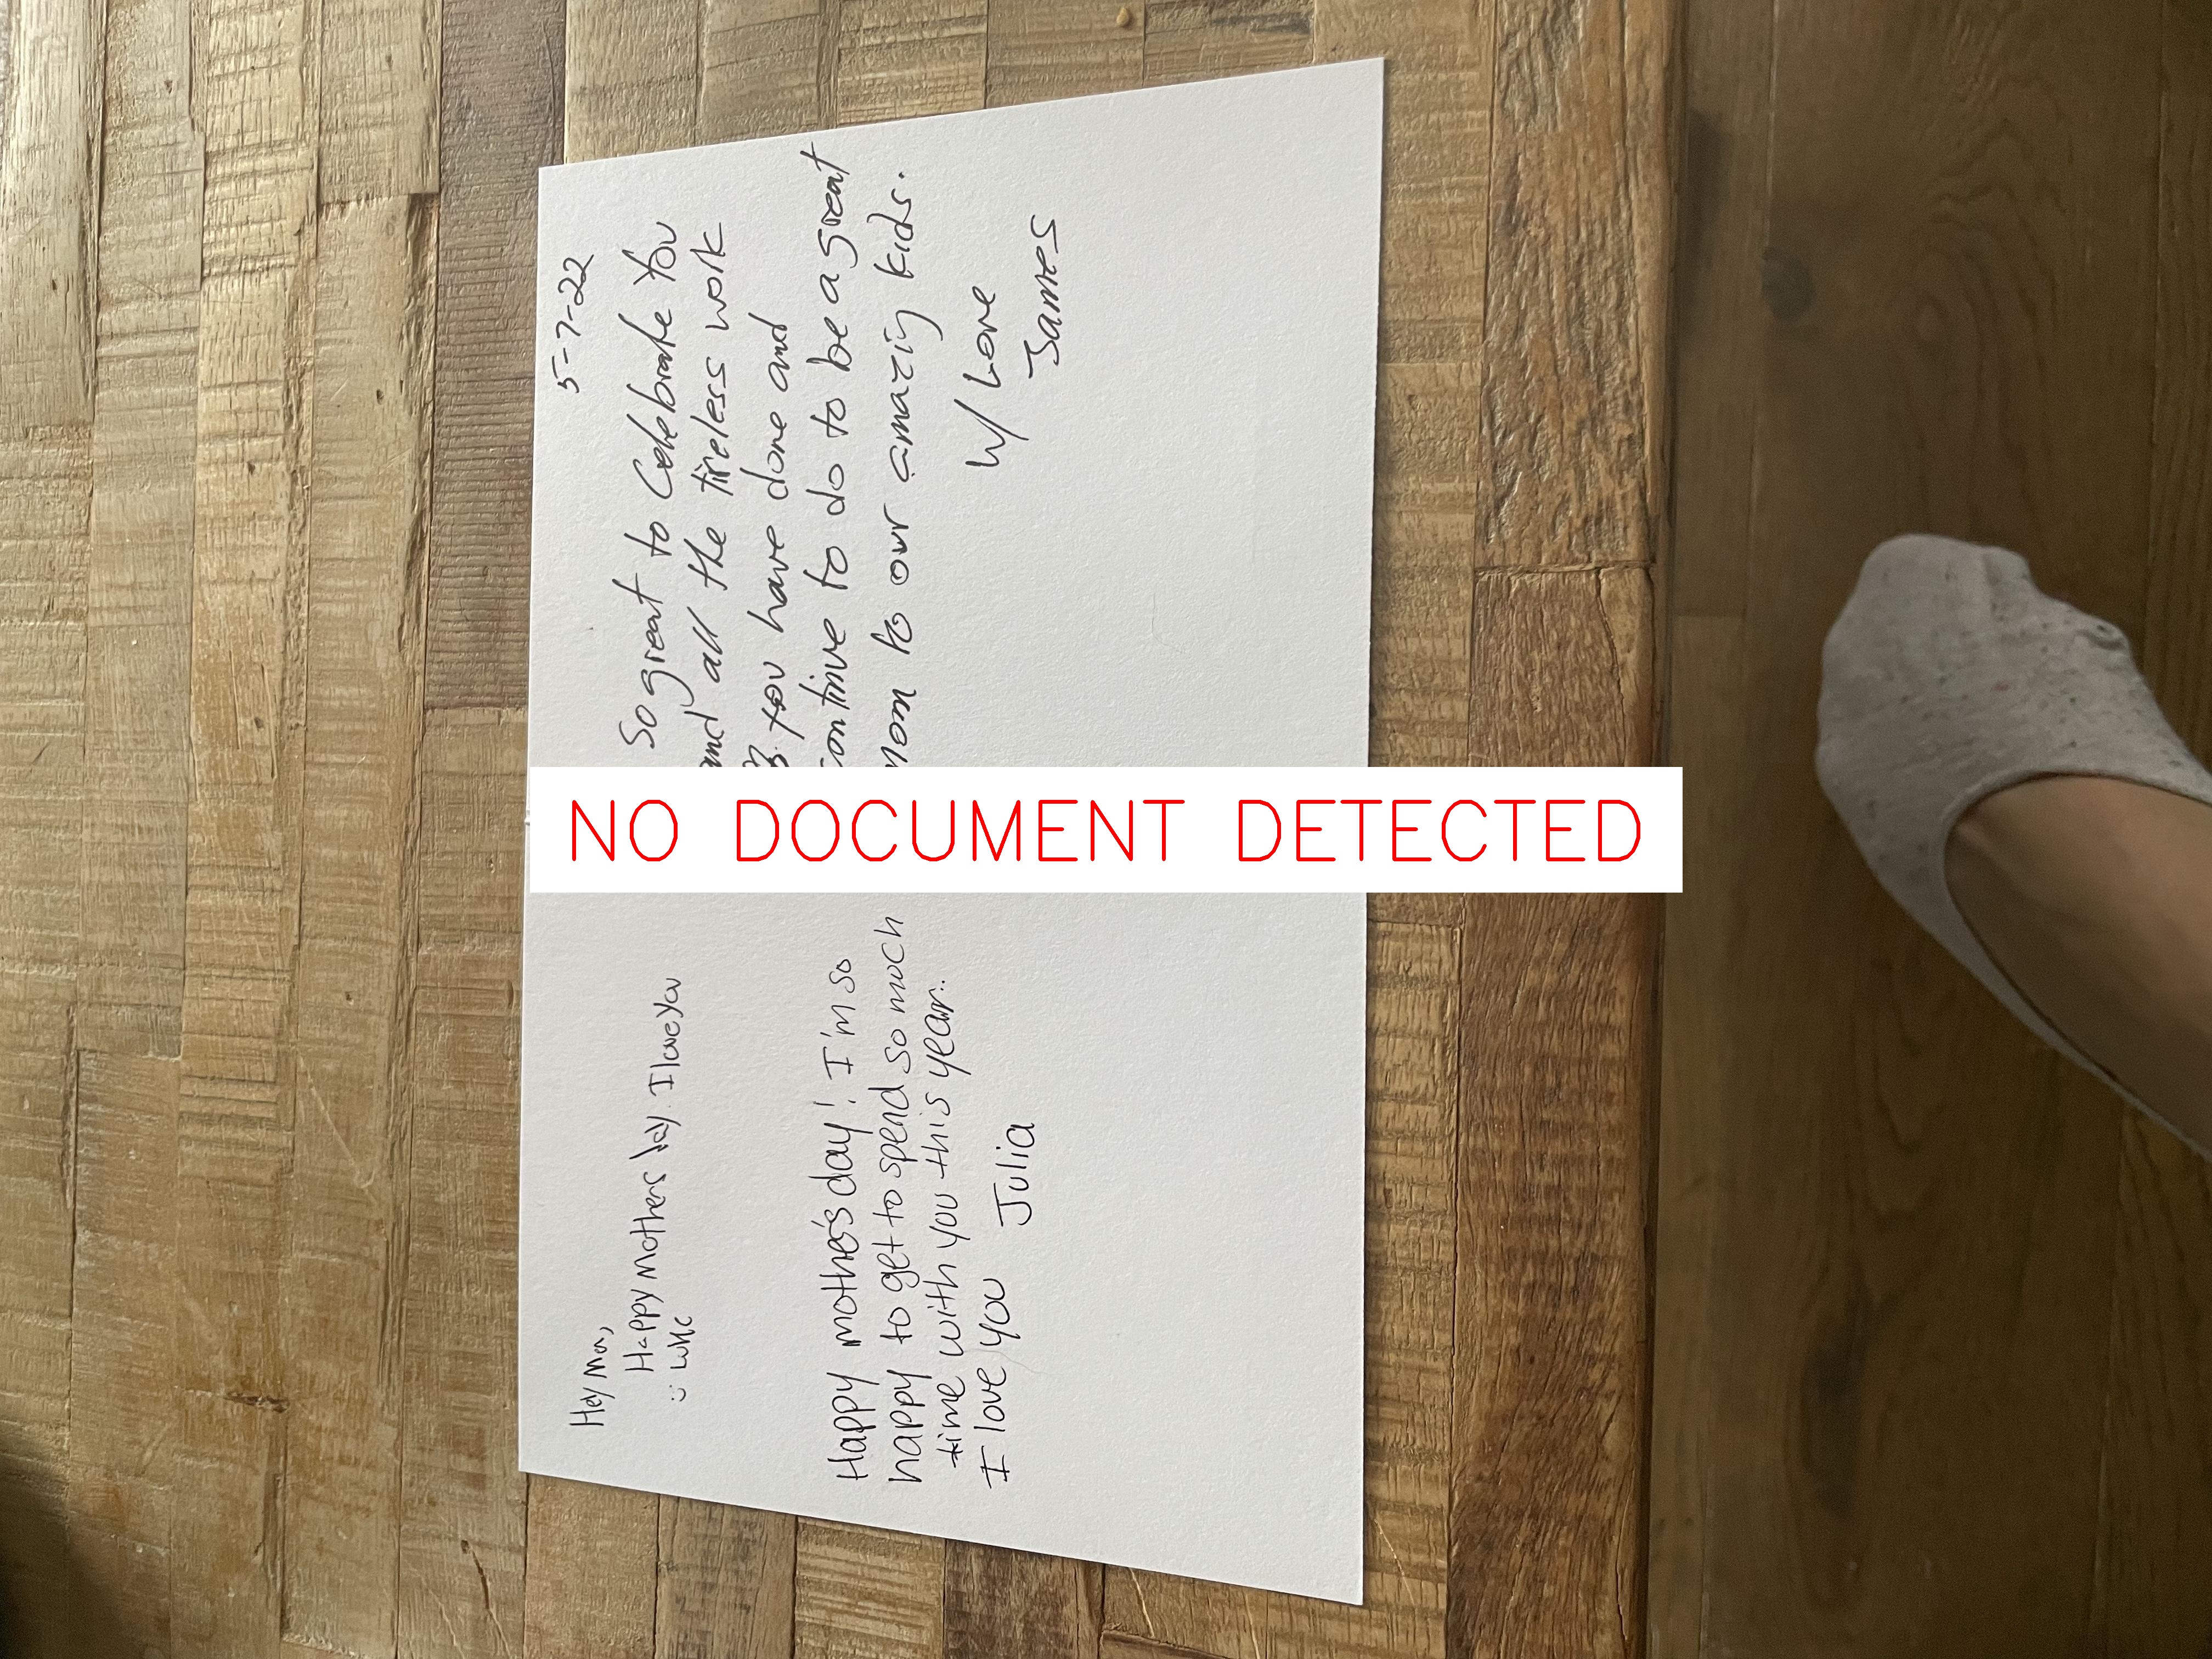 Hey Mom,
Happy Mothers Day I love you
:) Luke
Happy mother's day! I'm so
happy to get to spend so much
time with you this year.
I love you Julia
NO DOCUMENT DETECTED
5-7-22
So great to Celebrate You
and all the tireless work
you have done and
continue to do to be a great
Mom to our amazing kids.
W/ Love
James